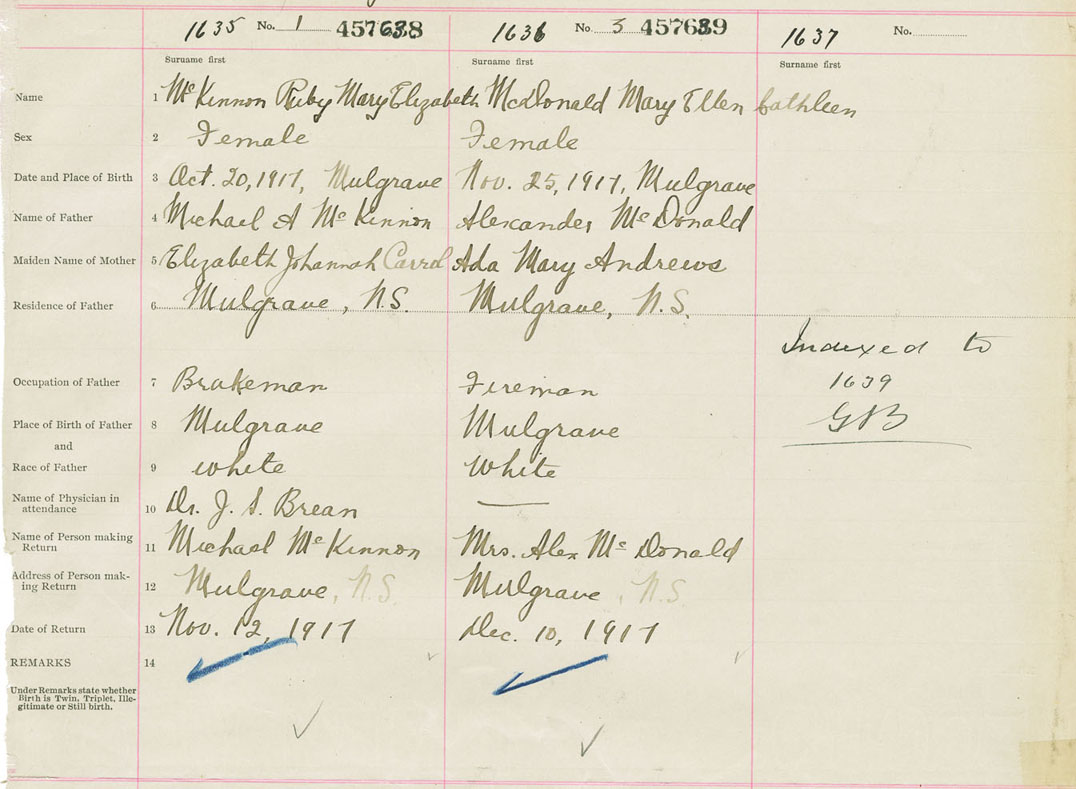 1635 No. 1 457638 1636 No. 3 457639 1637 No.
Surname first Surname first Surname first
Name 1 McKinnon Ruby Mary Elizabeth McDonald Mary Ellen Cathleen
Sex 2 Female Female
Date and Place of Birth 3 Oct. 20, 1917, Mulgrave Nov. 25, 1917, Mulgrave
Name of Father 4 Michael A McKinnon Alexander McDonald
Maiden Name of Mother 5 Elizabeth Johannah Carrol Ada Mary Andrews
Residence of Father 6 Mulgrave, N.S. Mulgrave, N.S.
Indexed to
Occupation of Father 7 Brakeman Fireman 1639
Place of Birth of Father 8 Mulgrave Mulgrave
and
Race of Father 9 white White
Name of Physician in
attendance 10 Dr. J. S. Brean —
Name of Person making
Return 11 Michael McKinnon Mrs. Alex McDonald
Address of Person mak-
ing Return 12 Mulgrave, N.S. Mulgrave, N.S.
Date of Return 13 Nov. 12, 1917 Dec. 10, 1917
REMARKS 14
Under Remarks state whether
Birth is Twin, Triplet, Ille-
gitimate or Still birth.